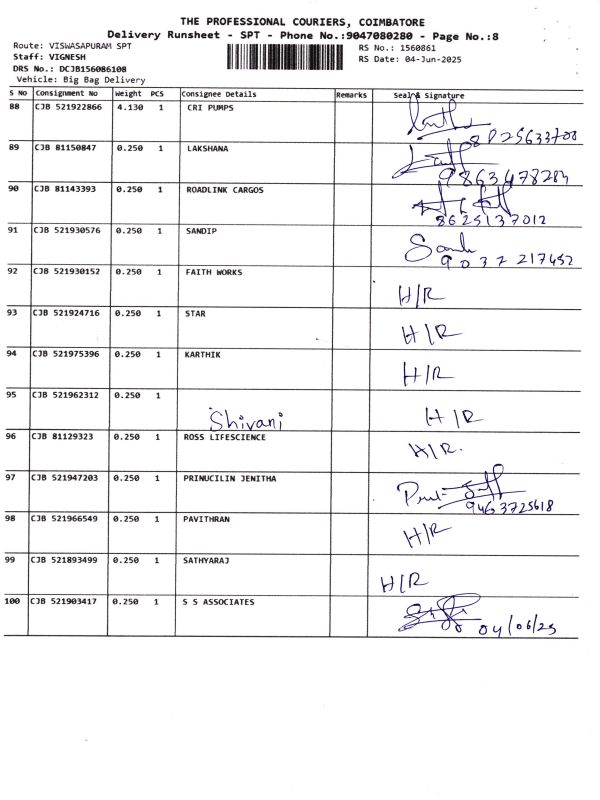 THE PROFESSIONAL COURIERS, COIMBATORE
Delivery Runsheet - SPT - Phone No.:9047080280 - Page No.:8
Route: VISWASAPURAM SPT
RS No.: 1560861
Staff: VIGNESH
RS Date: 04-Jun-2025
DRS No.: DCJB156086108
Vehicle: Big Bag Delivery
S No Consignment No Weight PCS Consignee Details Remarks Seal & Signature
88 CJB 521922866 4.130 1 CRI PUMPS
8825633700
89 CJB 81150847 0.250 1 LAKSHANA
9863478284
90 CJB 81143393 0.250 1 ROADLINK CARGOS
8625137012
91 CJB 521930576 0.250 1 SANDIP
9037217452
92 CJB 521930152 0.250 1 FAITH WORKS
H/R
93 CJB 521924716 0.250 1 STAR
H/R
94 CJB 521975396 0.250 1 KARTHIK
H/R
95 CJB 521962312 0.250 1
Shivani H/R
96 CJB 81129323 0.250 1 ROSS LIFESCIENCE
H/R.
97 CJB 521947203 0.250 1 PRINUCILIN JENITHA
9463725618
98 CJB 521966549 0.250 1 PAVITHRAN
H/R
99 CJB 521893499 0.250 1 SATHYARAJ
H/R
100 CJB 521903417 0.250 1 S S ASSOCIATES
04/06/25